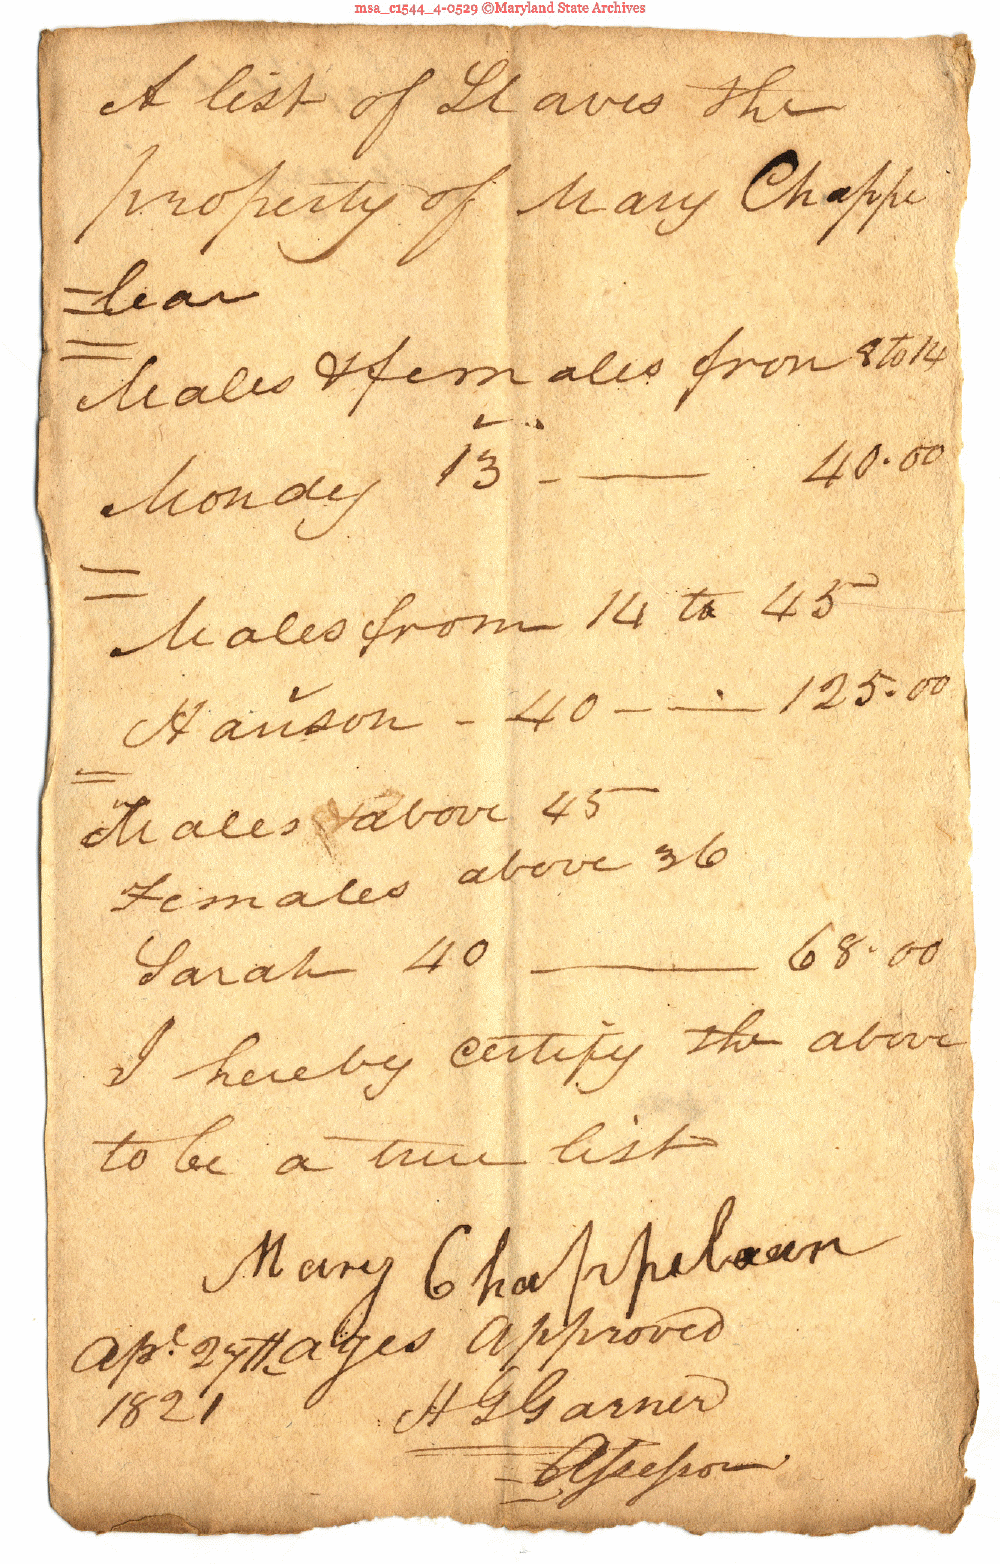 msa_c1544_4-0529 ©Maryland State Archives
A list of Slaves the
property of Mary Chappe
=lear
Males & females from 8 to 14
Monday 13 - — 40.00
Males from 14 to 45
Hanson - 40 - — 125.00
Males above 45
Females above 36
Sarah 40 — 68.00
I hereby certify the above
to be a true list
Mary Chappelear
Apl. 27th ages approved
1821 H G Garner
Assessor